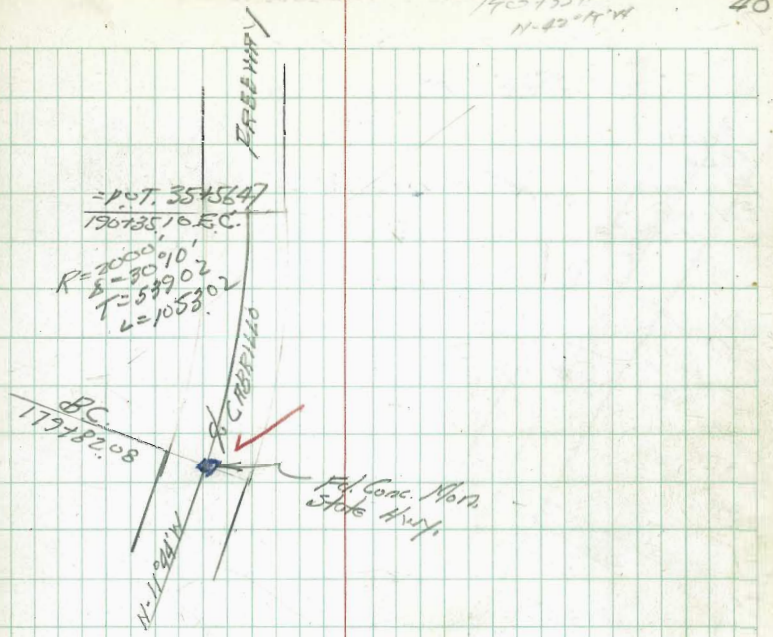 40
N-42°14'W
FREEWAY
=P.O.T. 35+56.47
190+35.10 E.C.
R=2000'
Δ=30°10'
T=539.02
L=1053.02
℄ CABRILLO
B.C.
179+82.08
Fd. Conc. Mon.
State Hwy.
N-11°44'W